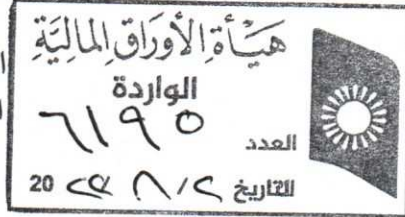 هيأة الأوراق المالية
الواردة
العدد ٦١٩٥
التاريخ ٢ / ٨ / 20٢٤